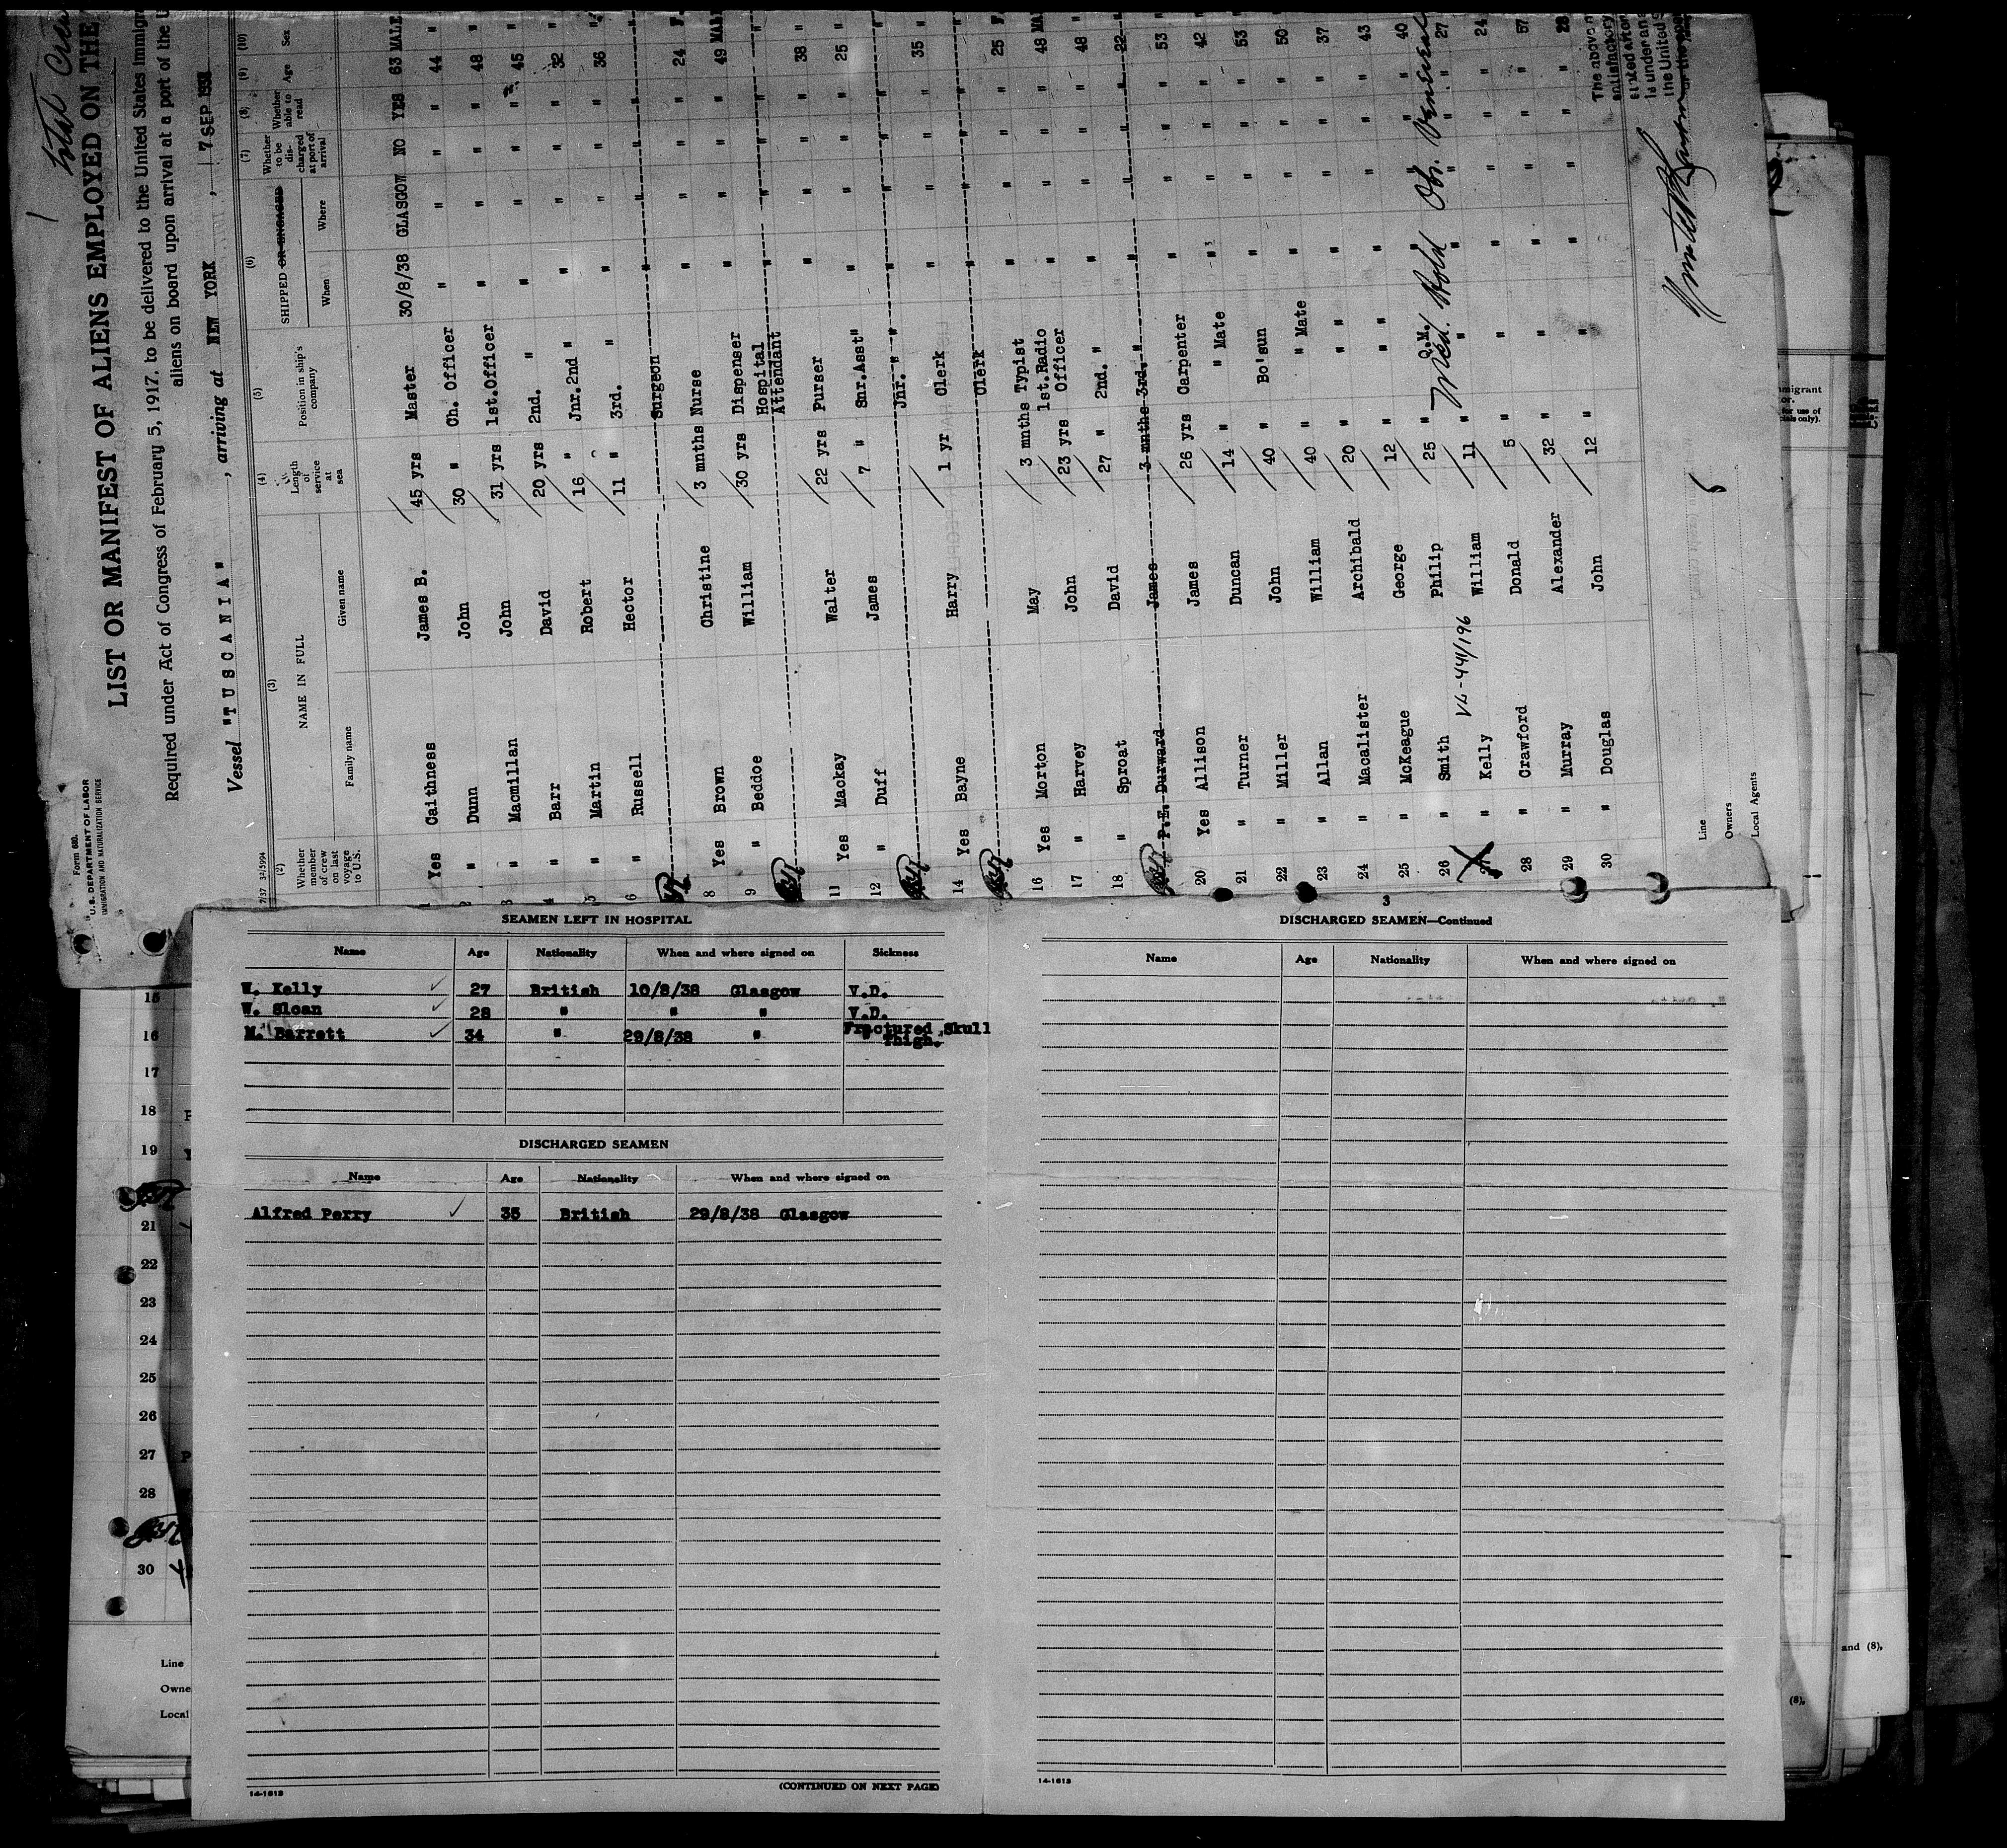 LIST OR MANIFEST OF ALIENS EMPLOYED ON THE
Required under Act of Congress of February 5, 1917, to be delivered to the United States immigr
aliens on board upon arrival at a port of the U
Form 680.
U.S. DEPARTMENT OF LABOR
IMMIGRATION AND NATURALIZATION SERVICE
Vessel "TUSCANIA", arriving at NEW YORK, 7 SEP 1938
(2) (3) (4) (5) (6) (7) (8) (9) (10)
Whether member of crew on last voyage to U.S. NAME IN FULL Family name Given name Length of service at sea Position in ship's company SHIPPED OR ENGAGED When Where Whether to be discharged at port of arrival Whether able to read Age Sex
1 Yes Caithness James B. 45 yrs Master 30/8/38 GLASGOW NO YES 63 MALE
2 " Dunn John 30 " Ch. Officer " " " " 44 "
3 " Macmillan John 31 yrs 1st.Officer " " " " 48 "
4 " Barr David 20 yrs 2nd. " " " " " 45 "
5 " Martin Robert 16 " Jnr.2nd " " " " " 32 "
6 " Russell Hector 11 " 3rd. " " " " " 36 "
Surgeon
8 Yes Brown Christine 3 mnths Nurse " " " " 24 F.
9 " Beddoe William 30 yrs Dispenser " " " " 49 MALE
Hospital Attendant
11 Yes Mackay Walter 22 yrs Purser " " " " 38 "
12 " Duff James 7 " Snr.Asst" " " " " 25 "
Jnr. " "
14 Yes Bayne Harry 1 yr Clerk " " " " 35 "
Clerk
16 Yes Morton May 3 mnths Typist " " " " 25 F.
17 " Harvey John 23 yrs 1st.Radio Officer " " " " 48 MA
18 " Sproat David 27 " 2nd. " " " " " 48 "
P.E. Durward James 3 mnths 3rd. " " " " " 22 "
20 Yes Allison James 26 yrs Carpenter " " " " 53 "
21 " Turner Duncan 14 " " Mate " " " " 42 "
22 " Miller John 40 " Bo'sun " " " " 53 "
23 " Allan William 40 " " Mate " " " " 50 "
24 " Macalister Archibald 20 " " " " " " 37 "
25 " McKeague George 12 " " " " " " 43 "
26 " Smith Philip 25 " Q.M. " " " " 40 "
27 " Kelly William 11 " " " " " " 27 "
28 " Crawford Donald 5 " " " " " " 24 "
29 " Murray Alexander 32 " " " " " " 57 "
30 " Douglas John 12 " " " " " " 28 "
VL-441/196
Med. Hold
Line
Owners
Local Agents
SEAMEN LEFT IN HOSPITAL
Name Age Nationality When and where signed on Sickness
W. Kelly 27 British 10/8/38 Glasgow V.D.
W. Sloan 28 " " " V.D.
M. Barrett 34 " 29/8/38 " Fractured Skull
" Thigh.
DISCHARGED SEAMEN
Name Age Nationality When and where signed on
Alfred Perry 35 British 29/8/38 Glasgow
(CONTINUED ON NEXT PAGE)
14-1613
3
DISCHARGED SEAMEN—Continued
Name Age Nationality When and where signed on
14-1613
15
16
17
18
19
21
22
23
24
25
26
27
28
30
Line
Owne
Local
and (8),
(8),